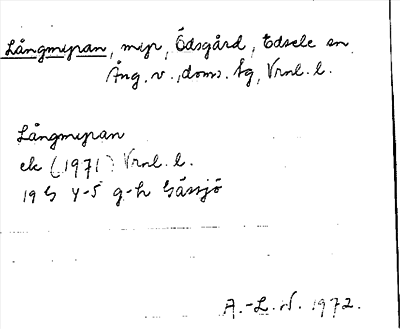 Långmyran, myr, Ödsgård, Edsele sn
Ång. v., doms. Åg, Vrnl. l.
Långmyran
ek (1971) Vrnl. l.
19 G 4-5 g-h Gåssjö
A.-L. N. 1972.